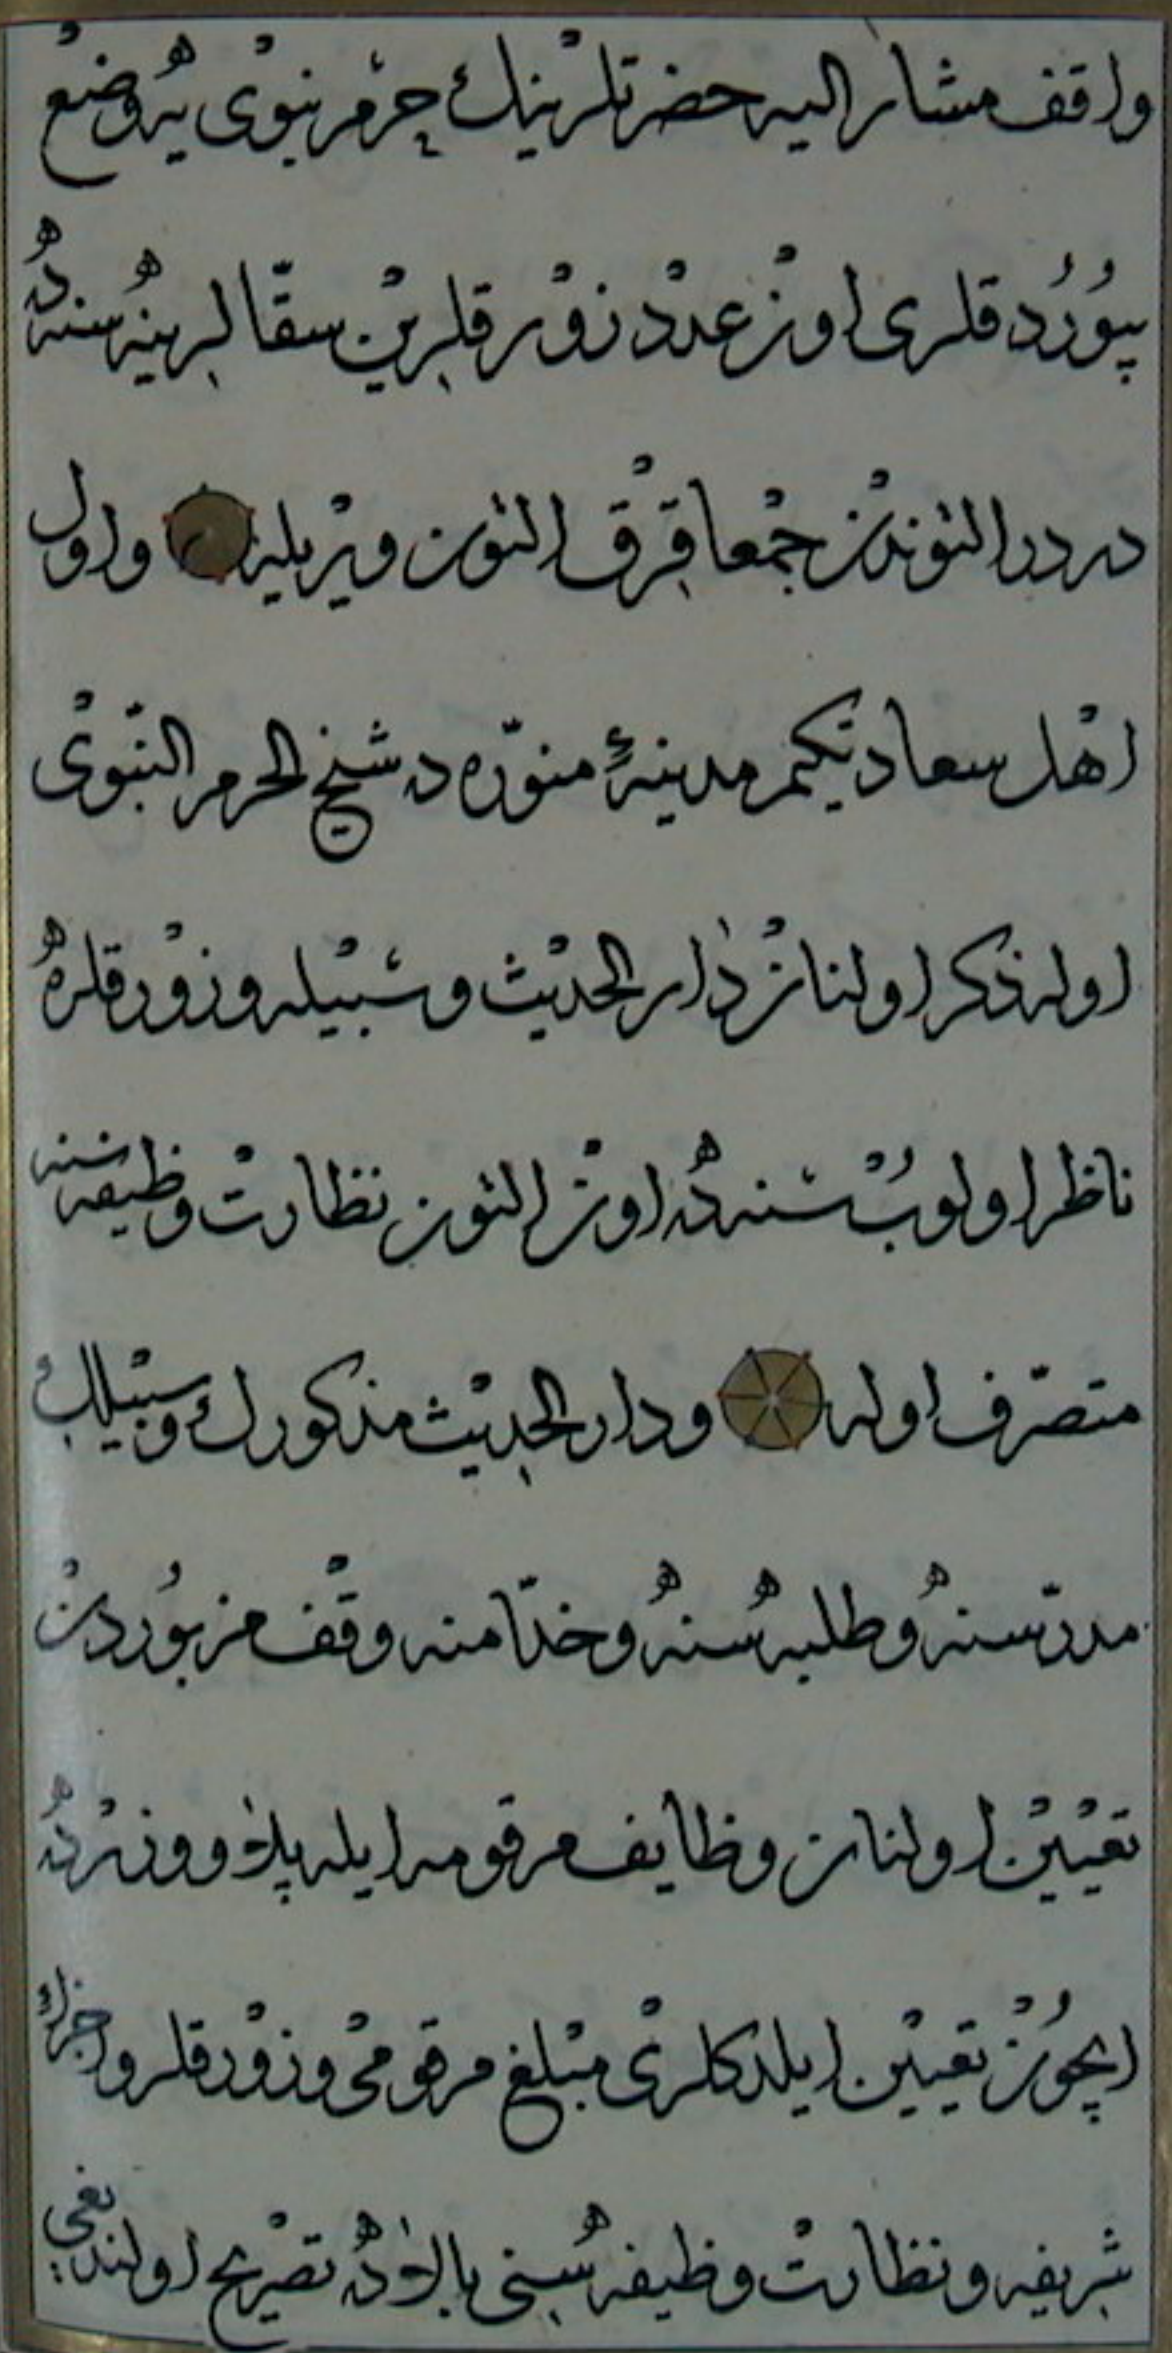 واقف مشار اليه حضرتلرينك حرم نبوى يه وضع
بيوردقلرى اون عدد زورقلرين سقالرينه سنه ده
دردر التوندن جمعا قرق التون ويريله واول
اهل سعادتكم مدينۀ منوره ده شيخ الحرم النبوى
اوله ذكر اولنان دار الحديث وسبيله وزورقلره
ناظر اولوب سنه ده اون التون نظارت وظيفه سنه
متصرف اوله ودار الحديث مذكورك وسبيلك
مدرسنه وطلبه سنه وخدامنه وقف مزبوردن
تعيين اولنان وظايف مرقومه ايله پلاو وزرده
ايچون تعيين ايلدكلرى مبلغ مرقومى وزورقلر واجزاء
شريفه ونظارت وظيفه سنى بالاده تصريح اولنديغى